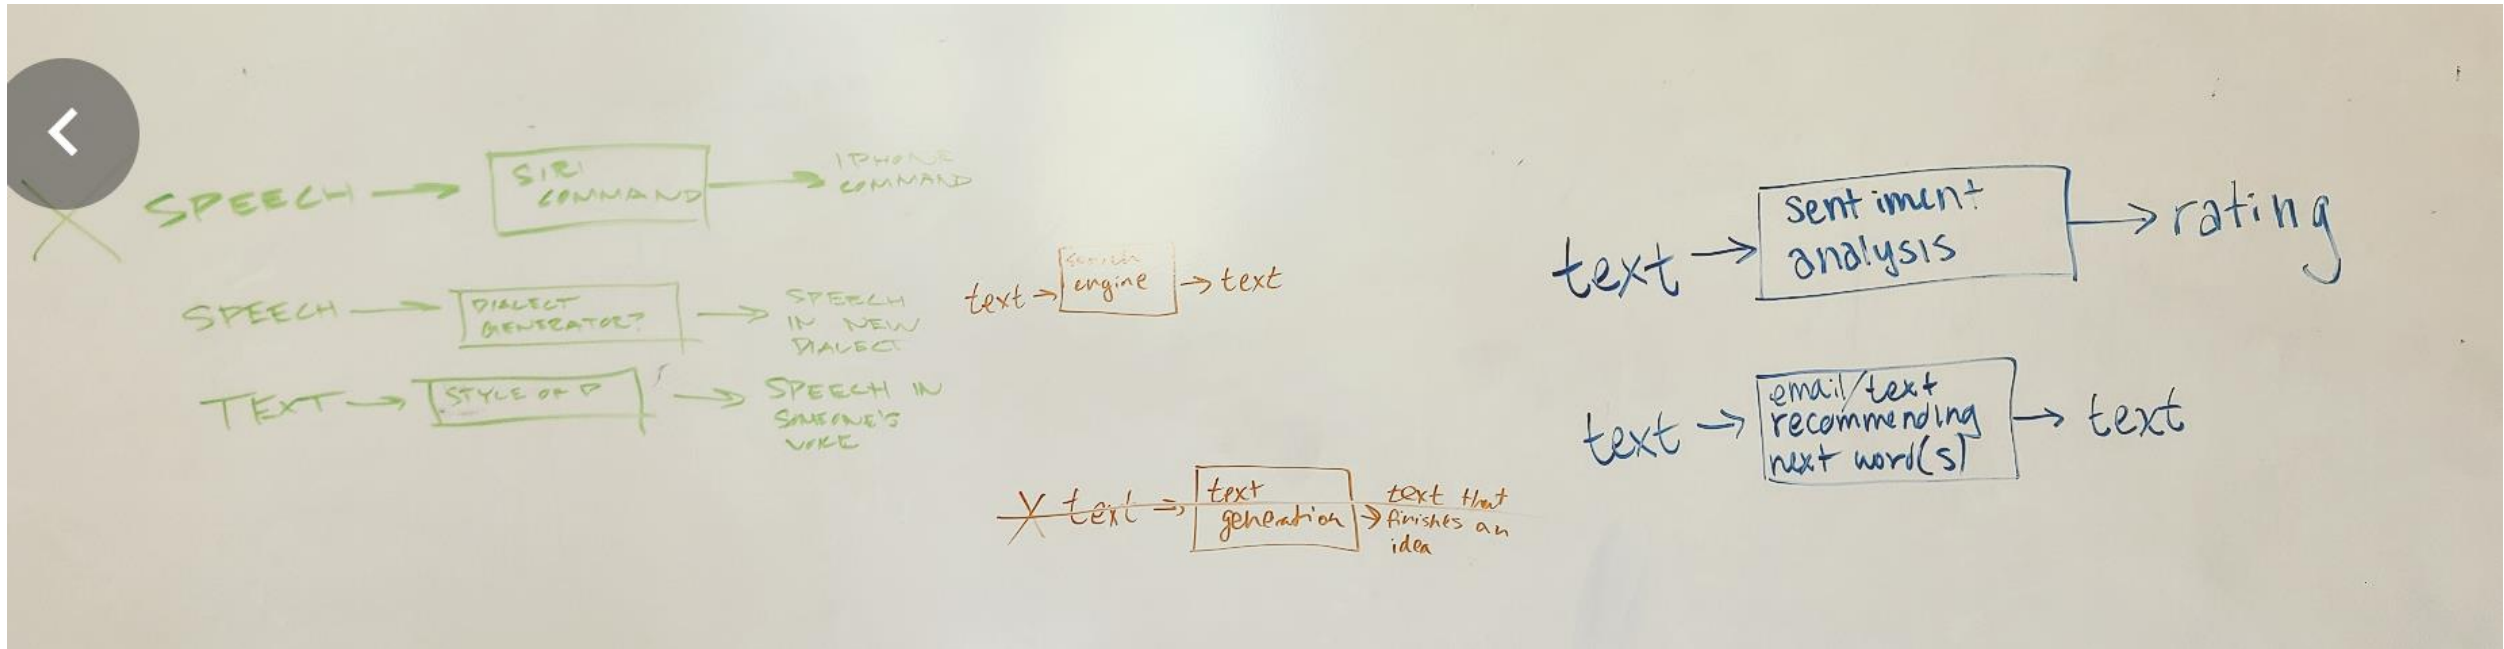 SPEECH → SIRI COMMAND → IPHONE COMMAND
SPEECH → DIALECT GENERATOR? → SPEECH IN NEW DIALECT
TEXT → STYLE OF → SPEECH IN SOMEONE'S VOICE
text → search engine → text
X text → text generation → text that finishes an idea
text → sentiment analysis → rating
text → email/text recommending next word(s) → text